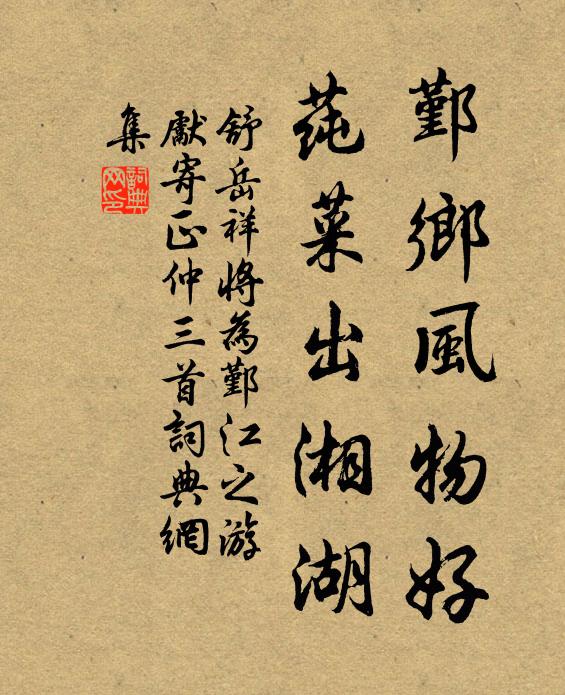 鄞鄉風物好
蒓菜出湘湖
舒岳祥將為鄞江之游
獻寄正仲三首詞典網
集
詞典网印